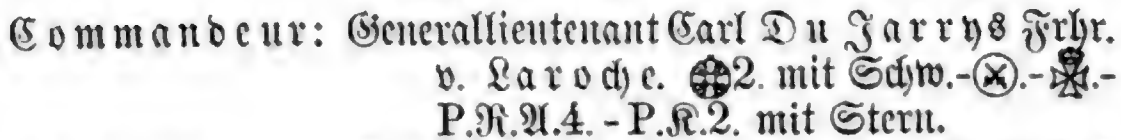 Commandeur: Generallieutenant Carl Du Jarrys Frhr.
v. Laroche. 2. mit Schw.-.-.-
P.R.A.4. - P.K.2. mit Stern.